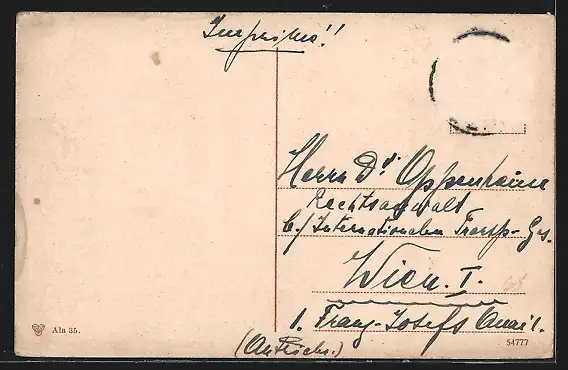 Imprimés!!
Herrn Dr. Oppenheim
Rechtsanwalt
b./ Internationalen Transp-Ges.
Wien. I.
1. Franz-Josefs Quai.
(Autriche.)
Ala 35.
54777